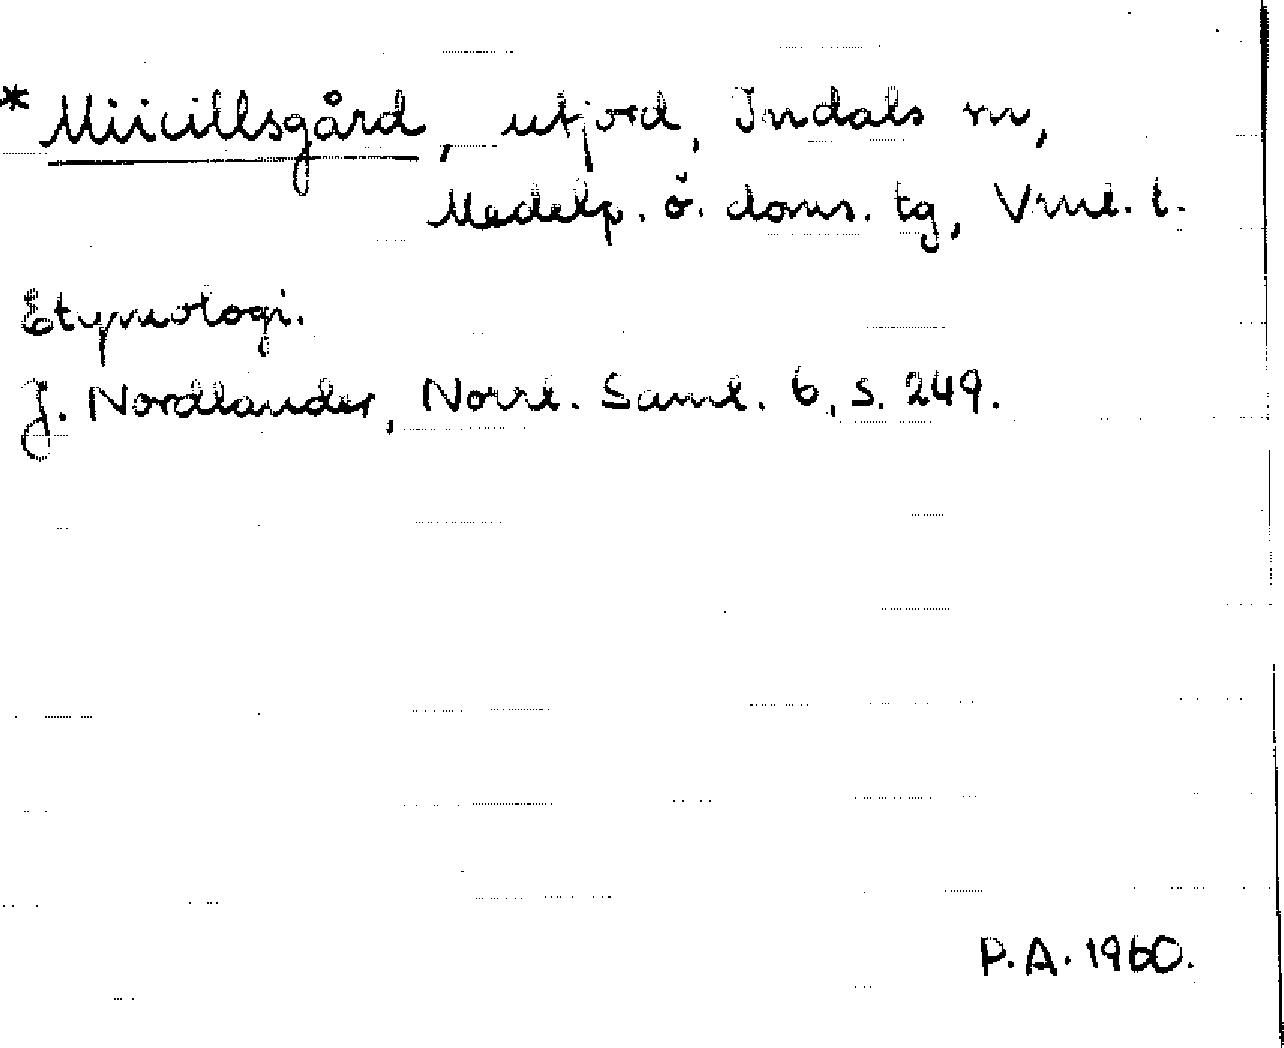 * Miicillsgård, utjord, Indals sn,
Medelp. ö. doms. tg, Vnl. l.
Etymologi.
J. Nordlander, Norrl. Saml. 6, s. 249.
P.A. 1960.